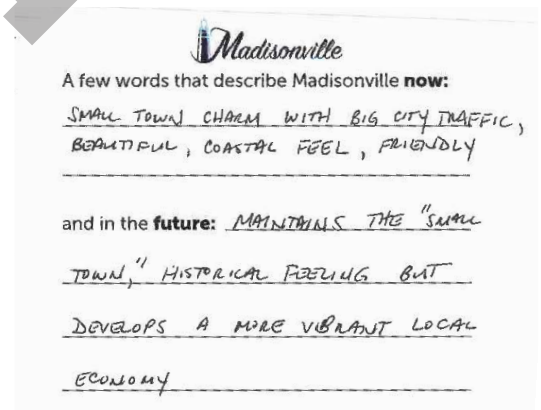 Madisonville
A few words that describe Madisonville now:
SMALL TOWN CHARM WITH BIG CITY TRAFFIC,
BEAUTIFUL, COASTAL FEEL, FRIENDLY
and in the future: MAINTAINS THE "SMALL
TOWN," HISTORICAL FEELING BUT
DEVELOPS A MORE VIBRANT LOCAL
ECONOMY